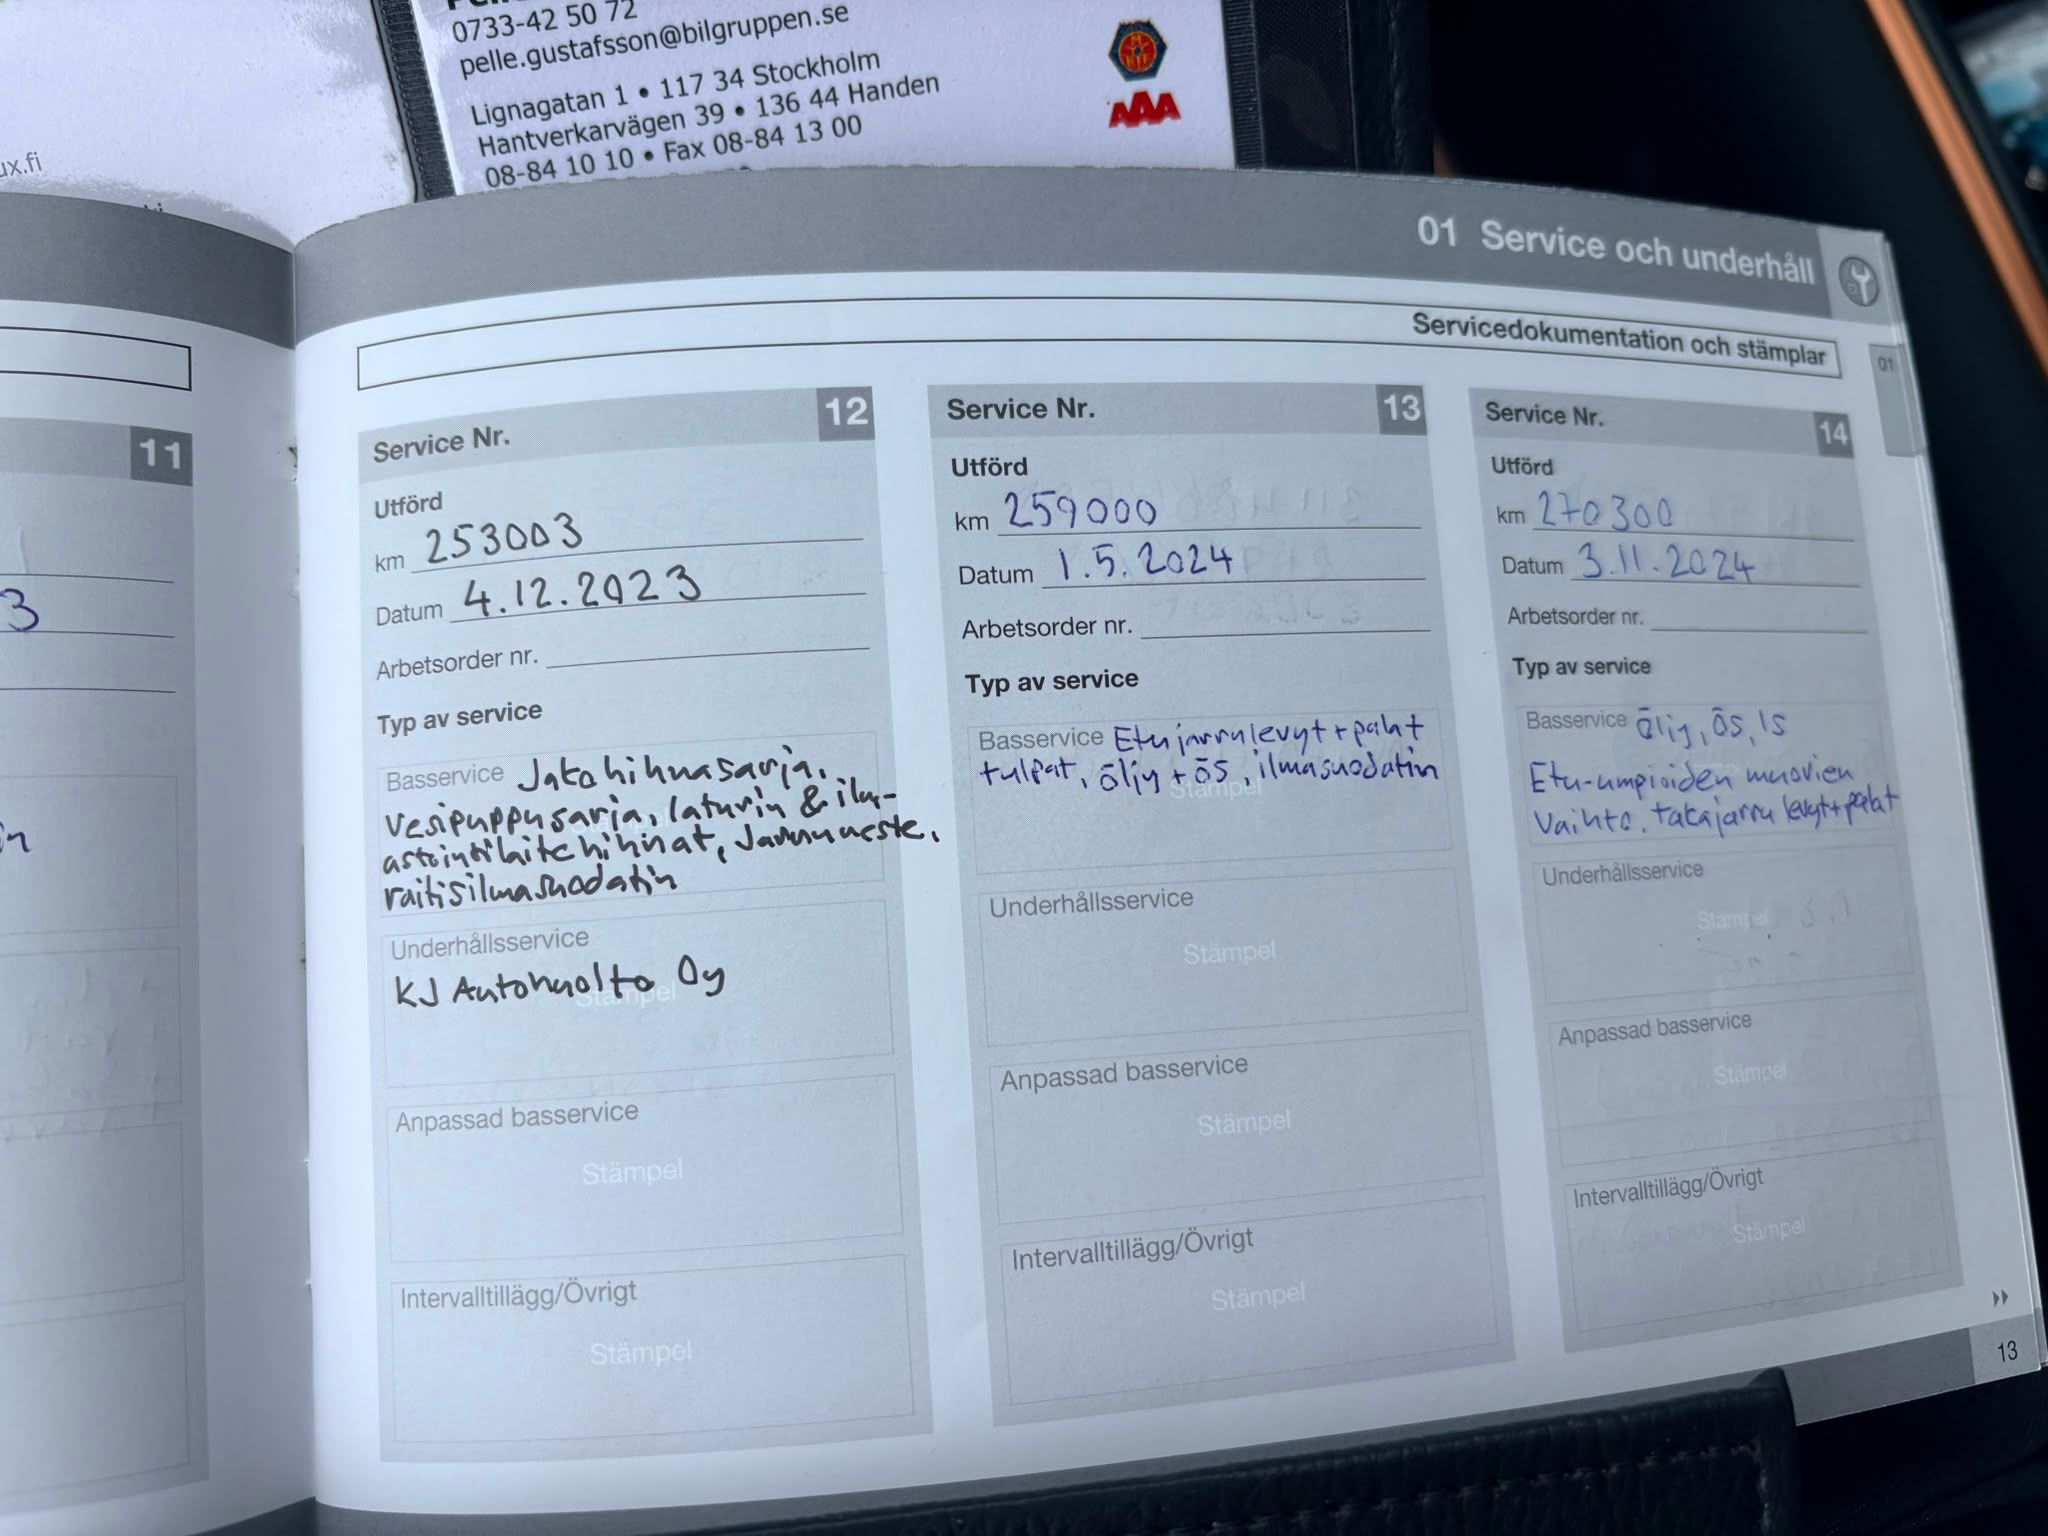 0733-42 50 72
pelle.gustafsson@bilgruppen.se
Lignagatan 1 • 117 34 Stockholm
Hantverkarvägen 39 • 136 44 Handen
08-84 10 10 • Fax 08-84 13 00
AAA
ux.fi
01 Service och underhåll
Servicedokumentation och stämplar
01
11
3
Service Nr. 12
Utförd
km 253003
Datum 4.12.2023
Arbetsorder nr.
Typ av service
Basservice Jakohihnasarja,
vesipumppusarja, laturin & ilm-
astointilaitehihnat, Jarruneste,
raitisilmasuodatin
Underhållsservice
KJ Autohuolto Oy
Stämpel
Anpassad basservice
Stämpel
Intervalltillägg/Övrigt
Stämpel
Service Nr. 13
Utförd
km 259000
Datum 1.5.2024
Arbetsorder nr.
Typ av service
Basservice Etujarrulevyt+palat
tulpat, öljy + ös, ilmasuodatin
Stämpel
Underhållsservice
Stämpel
Anpassad basservice
Stämpel
Intervalltillägg/Övrigt
Stämpel
Service Nr. 14
Utförd
km 270300
Datum 3.11.2024
Arbetsorder nr.
Typ av service
Basservice öljy, ös, is
Etu-umpioiden muovien
vaihto, takajarru levyt+palat
Underhållsservice
Stämpel
Anpassad basservice
Stämpel
Intervalltillägg/Övrigt
Stämpel
13